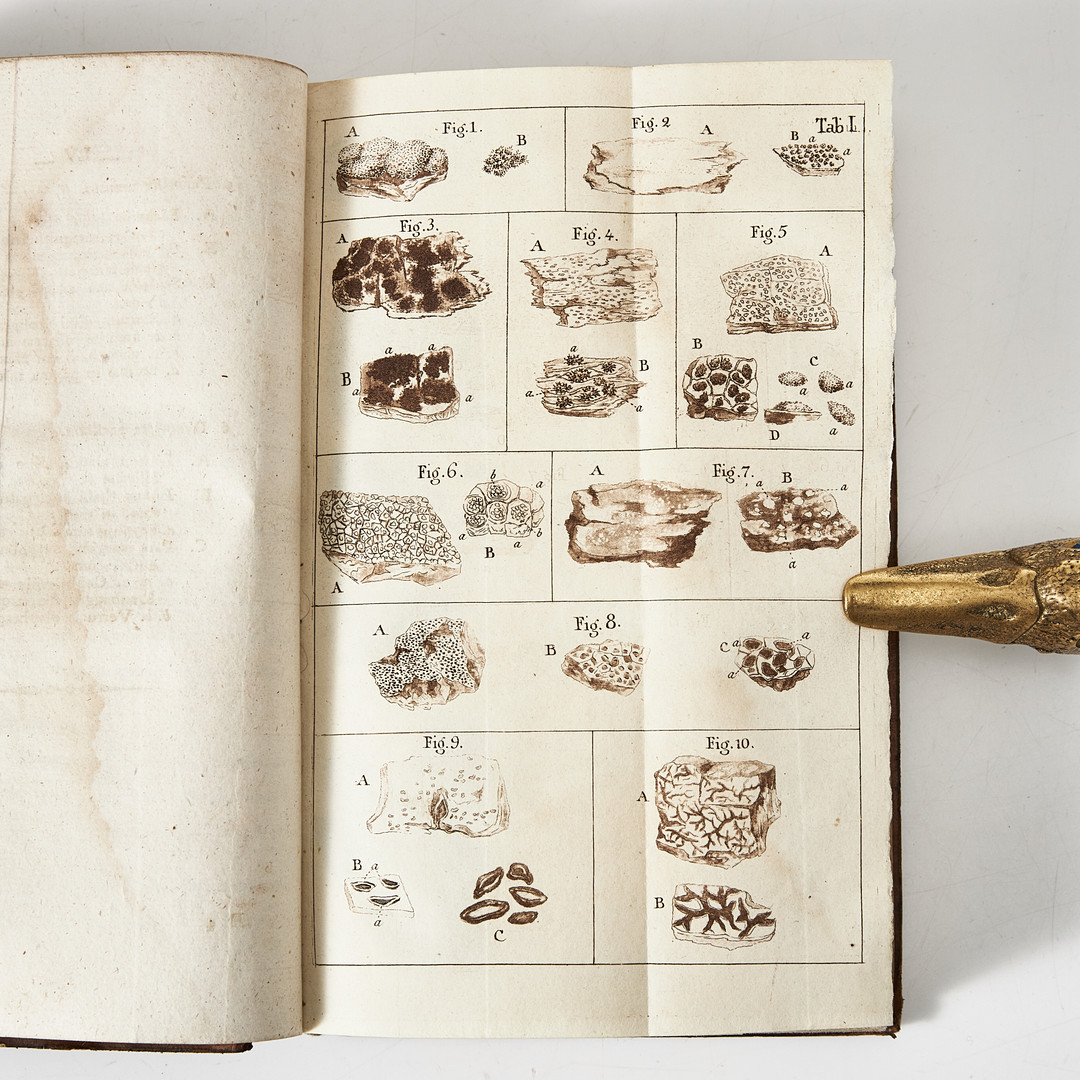 Fig. 1.
A
B
Fig. 2
A
Tab I.
B a
a
Fig. 3.
A
a a
B a
a
Fig. 4.
A
a
B
a
a
Fig. 5
A
B
C
a
D
a
Fig. 6.
b
a
a
a
b
B
A
Fig. 7.
A
B
a
a
a
Fig. 8.
A
B
C a
a
a
Fig. 9.
A
B a
a
C
Fig. 10.
A
B